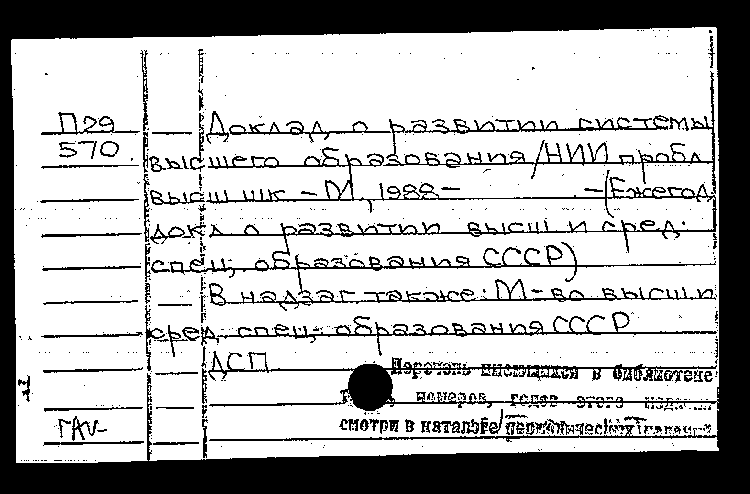 П29
570
Доклад о развитии системы
высшего образования/НИИ пробл
высш шк. - М., 1988- -(Ежегод
докл о развитии высш и сред.
спец. образования СССР)
В надзаг также: М-во высш и
сред. спец. образования СССР
ДСП
Перечень имеющихся в библиотеке
номеров, годов этого
смотри в каталоге периодических изданий